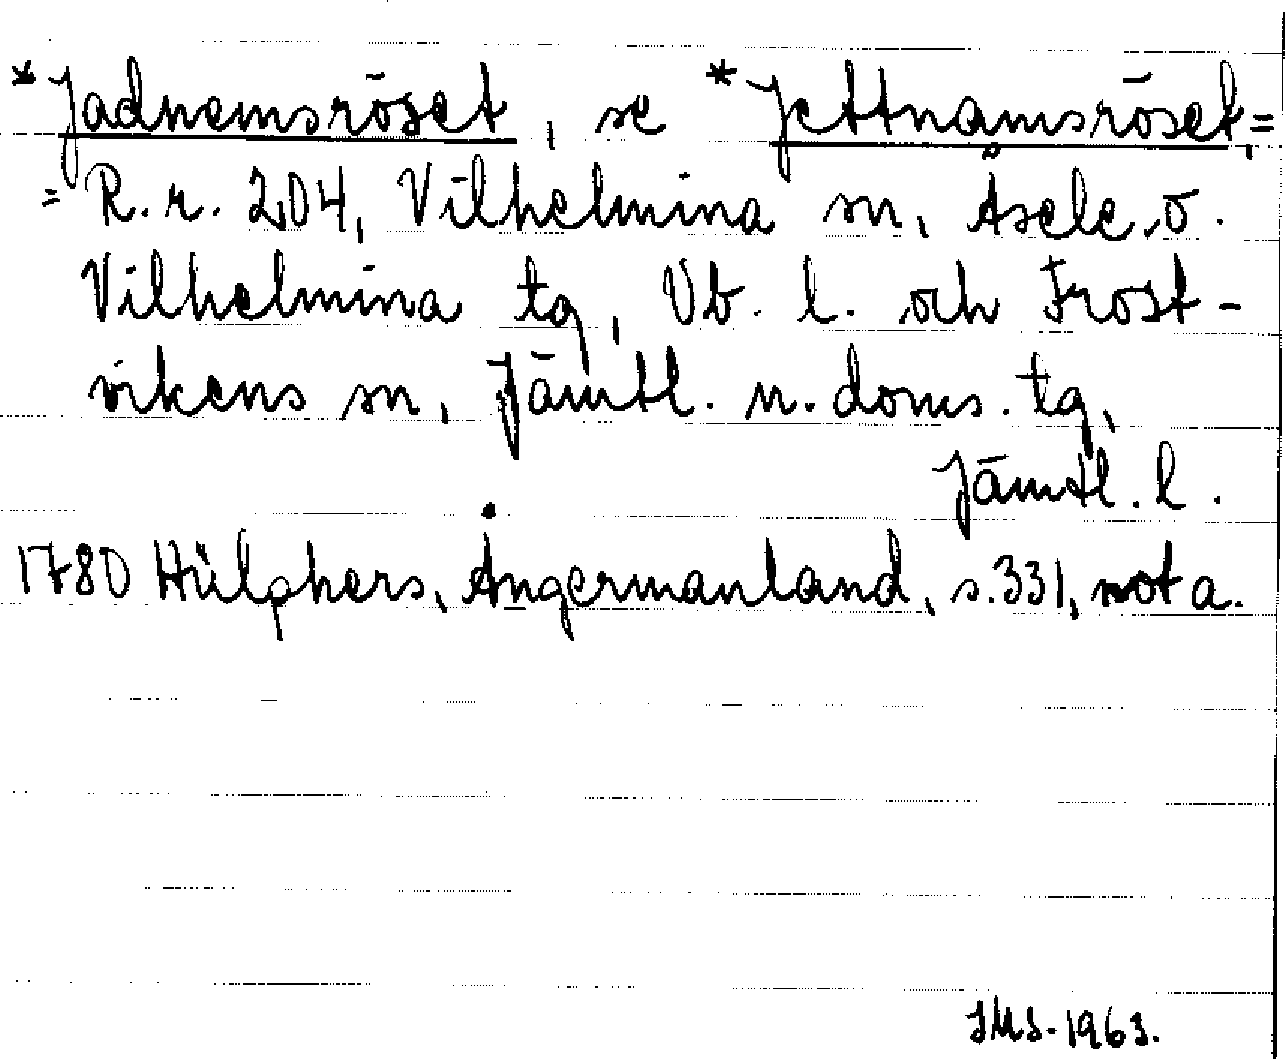 *Jadnemsröset, se *Jettnamsröset, =
= R.r. 204, Vilhelmina sn, Åsele o.
Vilhelmina tg, Vb. l. och Frost-
vikens sn, Jämtl. n. doms. tg,
Jämtl. l.
1780 Hülphers, Ångermanland, s. 331, not a.
JMS. 1963.